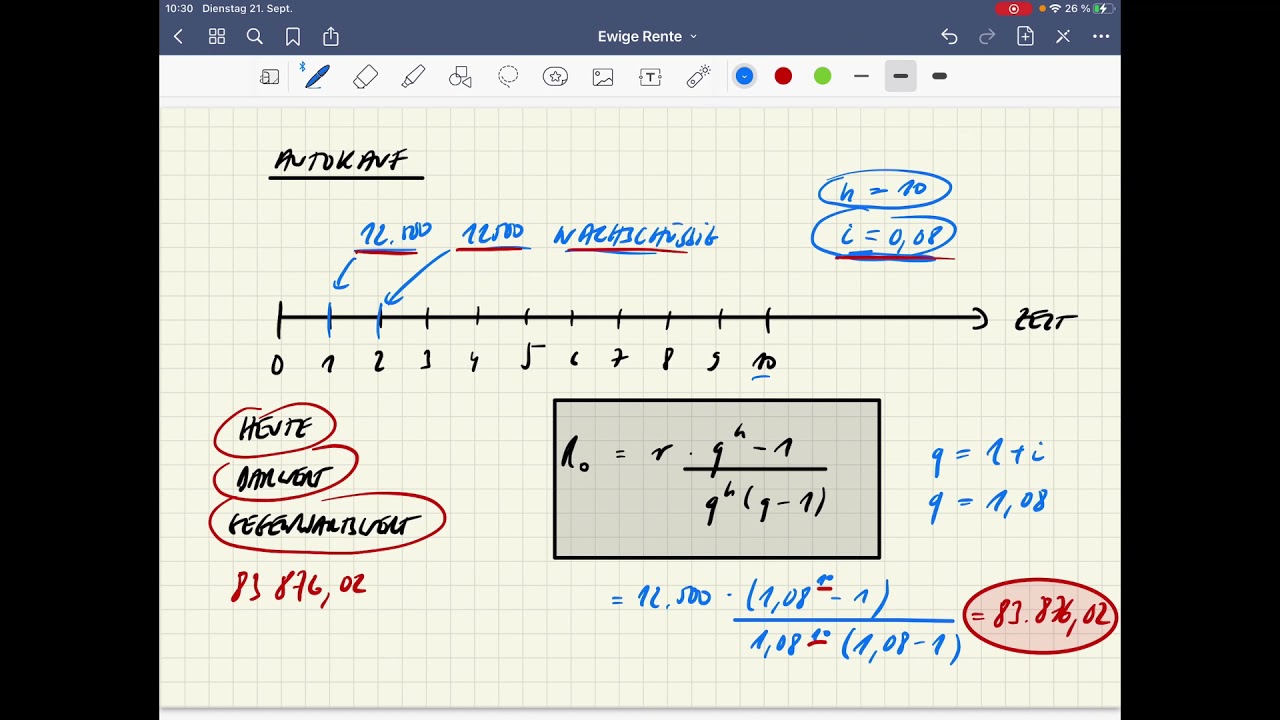 10:30 Dienstag 21. Sept. 26 %
Ewige Rente
AUTOKAUF
n = 10
12.500 12500 NACHSCHÜSSIG
i = 0,08
ZEIT
0 1 2 3 4 5 6 7 8 9 10
HEUTE
BARWERT
GEGENWARTSWERT
83 876,02
R₀ = r · qⁿ - 1
qⁿ (q - 1)
q = 1 + i
q = 1,08
= 12.500 · (1,08¹⁰ - 1)
1,08¹⁰ (1,08 - 1)
= 83.876,02